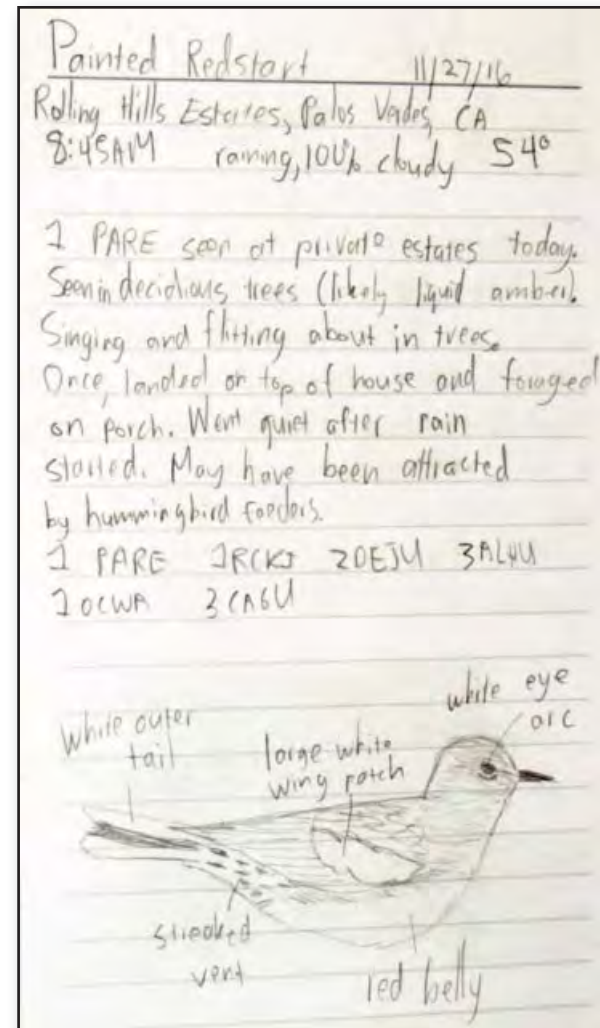 Painted Redstart 11/27/16
Rolling Hills Estates, Palos Verdes, CA
8:45AM raining, 100% cloudy 54°
1 PARE seen at private estates today.
Seen in decidious trees (likely liquid amber).
Singing and flitting about in trees.
Once, landed on top of house and foraged
on porch. Went quiet after rain
started. May have been attracted
by hummingbird feeders.
1 PARE 1RCKI 2DEJU 3ALHU
1OCWA 3CAGU
white eye
arc
white outer
tail
large white
wing patch
streaked
vent
red belly